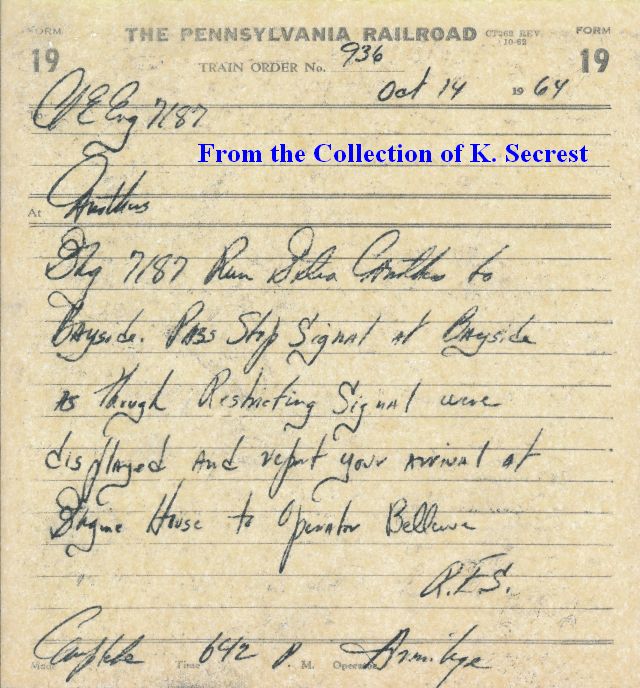 FORM 19 THE PENNSYLVANIA RAILROAD CT268 REV. 10-62 FORM 19
TRAIN ORDER No. 936
Oct 14 1964
Eng 7187
From the Collection of K. Secrest
At Carrothers
Eng 7187 Run Extra Carrothers to
Bayside. Pass Stop Signal at Bayside
as though Restricting Signal were
displayed and report your arrival at
Engine House to Operator Bellevue
R.E.S.
Made Complete Time 642 P. M. Operator Armitage